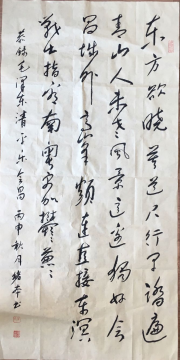 东方欲晓莫道君行早踏遍
青山人未老风景这边独好会
昌城外高峰颠连直接东溟
战士指看南粤更加鬱〻葱〻
恭录毛泽东清平乐会昌 丙申秋月 书